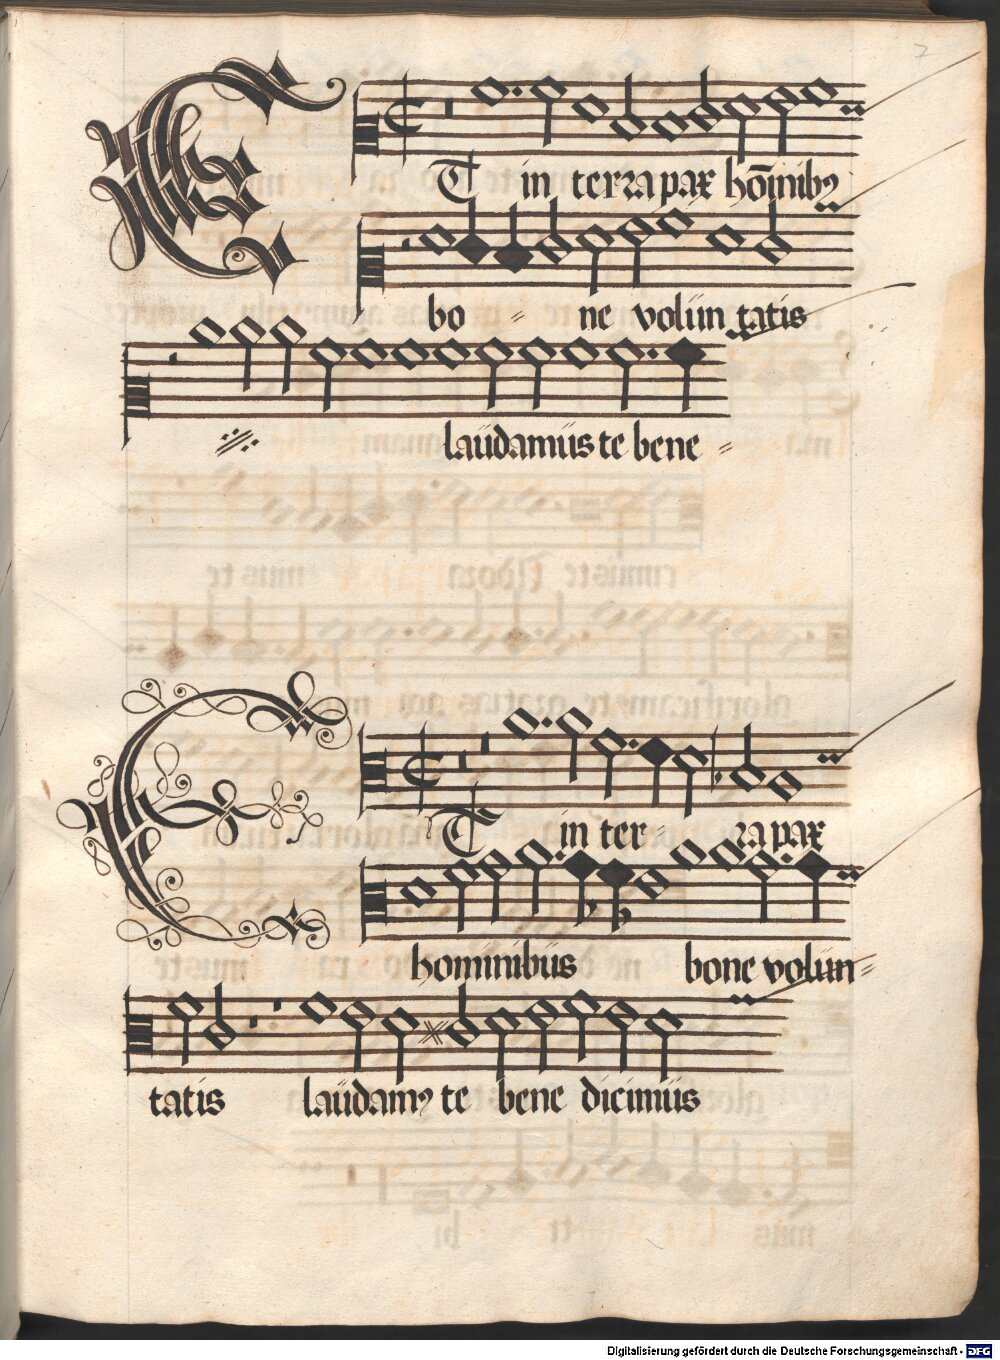 7
ET in terra pax hōīnibꝰ
bo - ne volun tatis
laudamus te bene -
ET in ter- ra pax
hominibus bone volun-
tatis laudamꝰ te bene dicimus
Digitalisierung gefördert durch die Deutsche Forschungsgemeinschaft - DFG